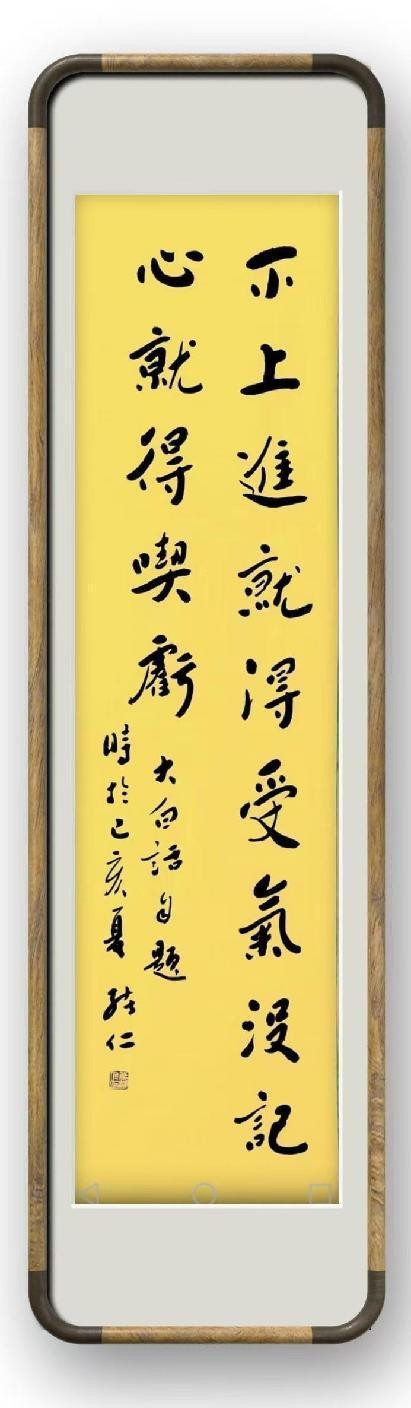 不上進就得受氣沒記
心就得喫虧
大白話自題
時於己亥夏 仁